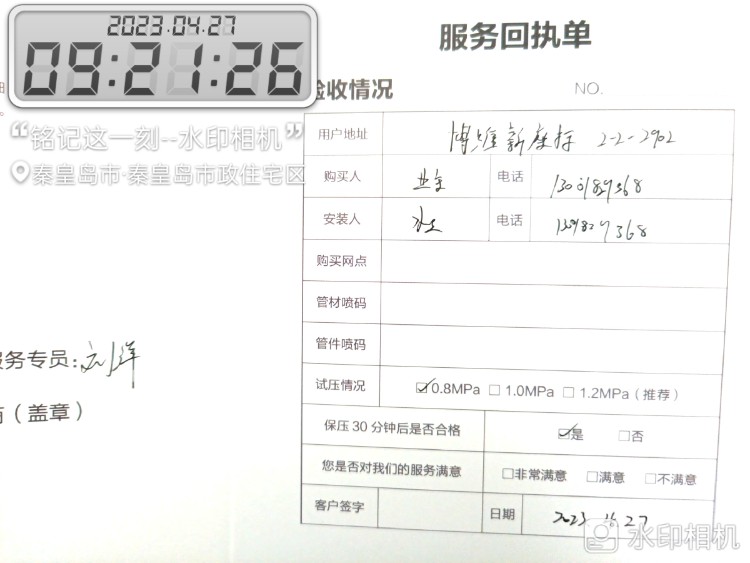 2023.04.27
09:21:26
“铭记这一刻--水印相机”
秦皇岛市·秦皇岛市政住宅区
服务回执单
验收情况
NO.
用户地址 博维新座标 2-2-2902
购买人 业主 电话
安装人 水工 电话
购买网点
管材喷码
管件喷码
试压情况 ☑0.8MPa □1.0MPa □1.2MPa（推荐）
保压30分钟后是否合格 ☑是 □否
您是否对我们的服务满意 □非常满意 □满意 □不满意
客户签字 日期 2023.4.27
服务专员：刘洋
（盖章）
水印相机